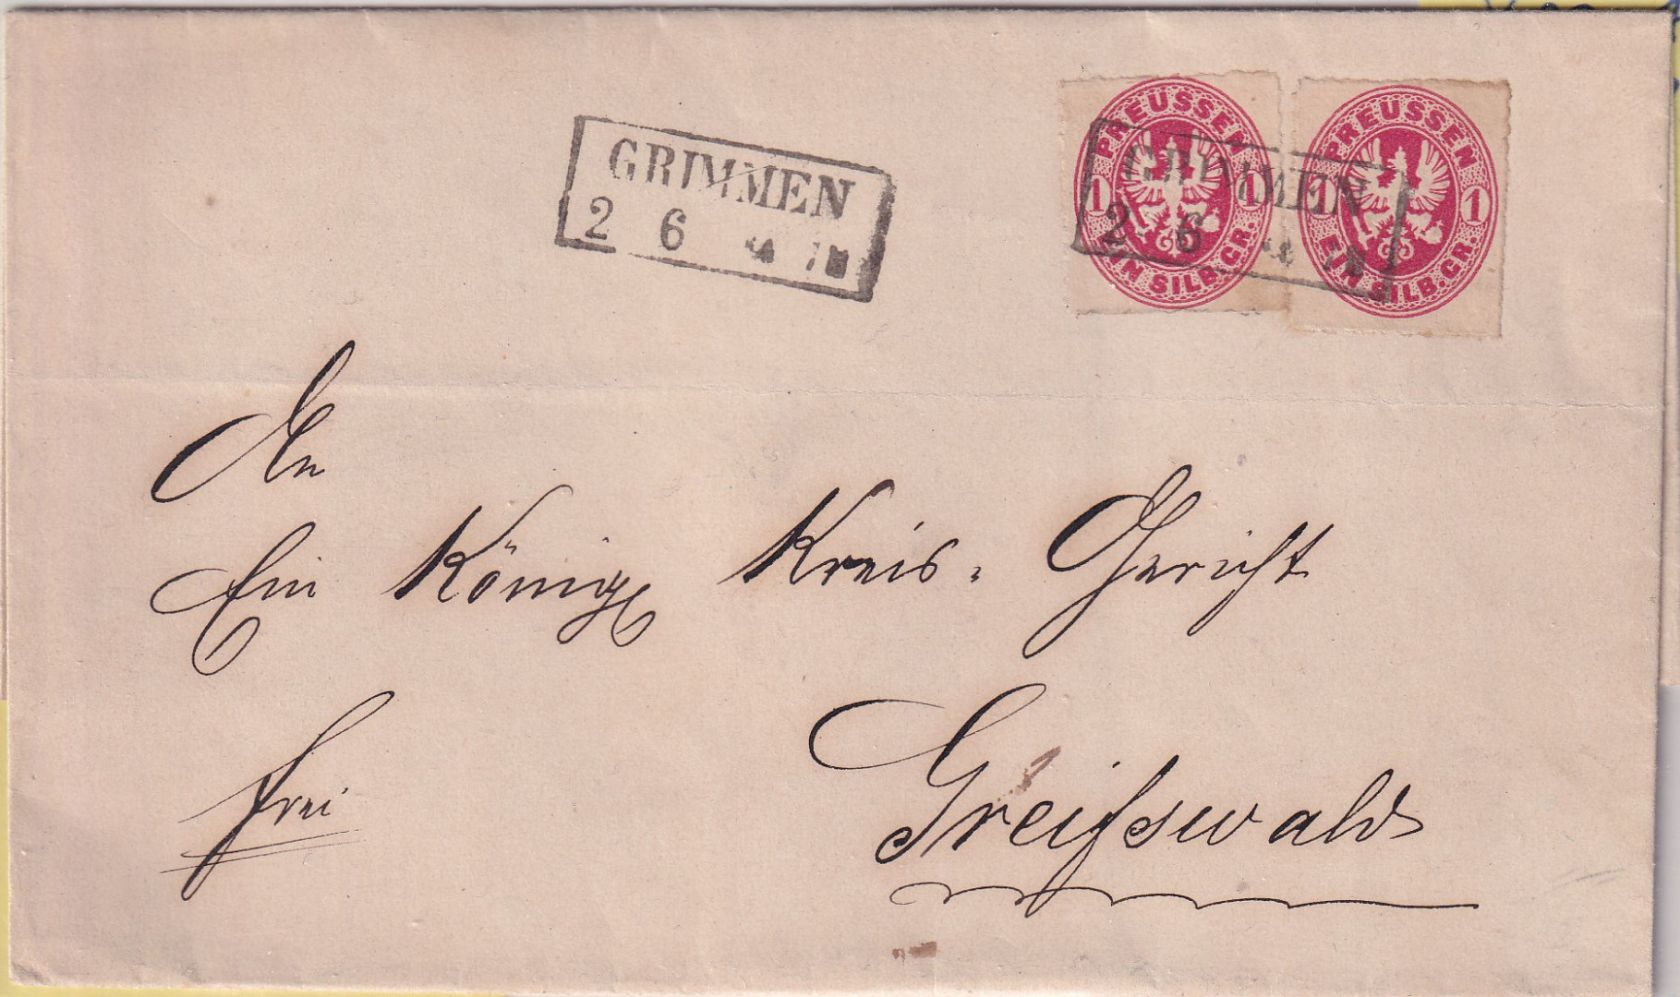 GRIMMEN
2 6
PREUSSEN
1 1
EIN SILB.GR.
PREUSSEN
1 1
EIN SILB.GR.
GRIMMEN
2 6
An
Ein Königl Kreis-Gericht
frei
Greifswald